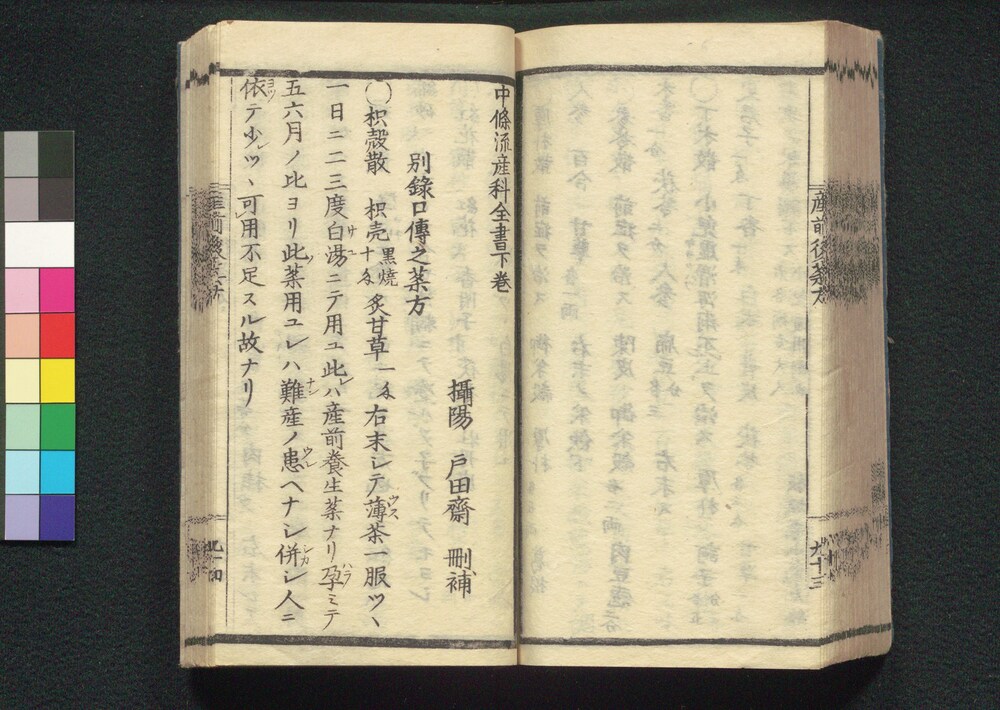 産前後薬方
九十三
中條流産科全書下巻
別錄口傳之薬方
攝陽 戸田齋 刪補
〇枳殼散 枳壳黒燒十匁 炙甘草一匁 右末シテ薄茶一服ツヽ
一日ニ二三度白湯ニテ用ユ此レハ産前養生薬ナリ孕ミテ
五六月ノ比ヨリ此ノ薬用ユレハ難産ノ患ヘナシ併シ人ニ
依テ少シツヽ可用不足スル故ナリ